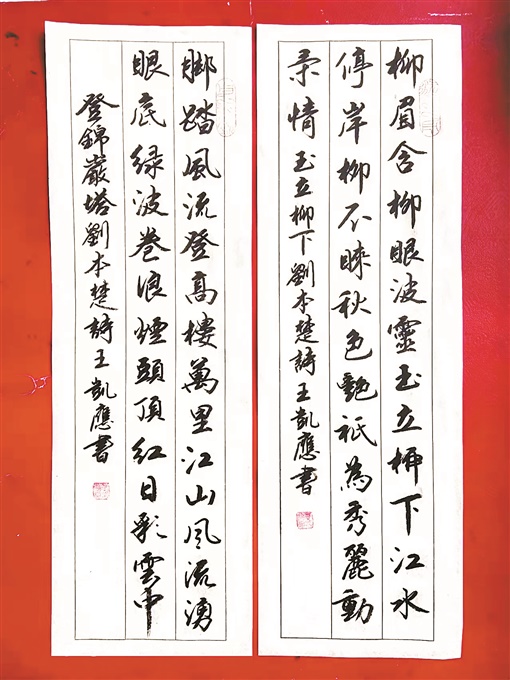 柳眉含柳眼波靈玉立柳下江水
停岸柳不睐秋色艷祇為秀麗動
柔情玉立柳下劉本楚詩王凱應書
脚踏風流登高樓萬里江山風流湧
眼底绿波卷浪煙頭頂红日彩雲中
登錦巖塔劉本楚詩王凱應書